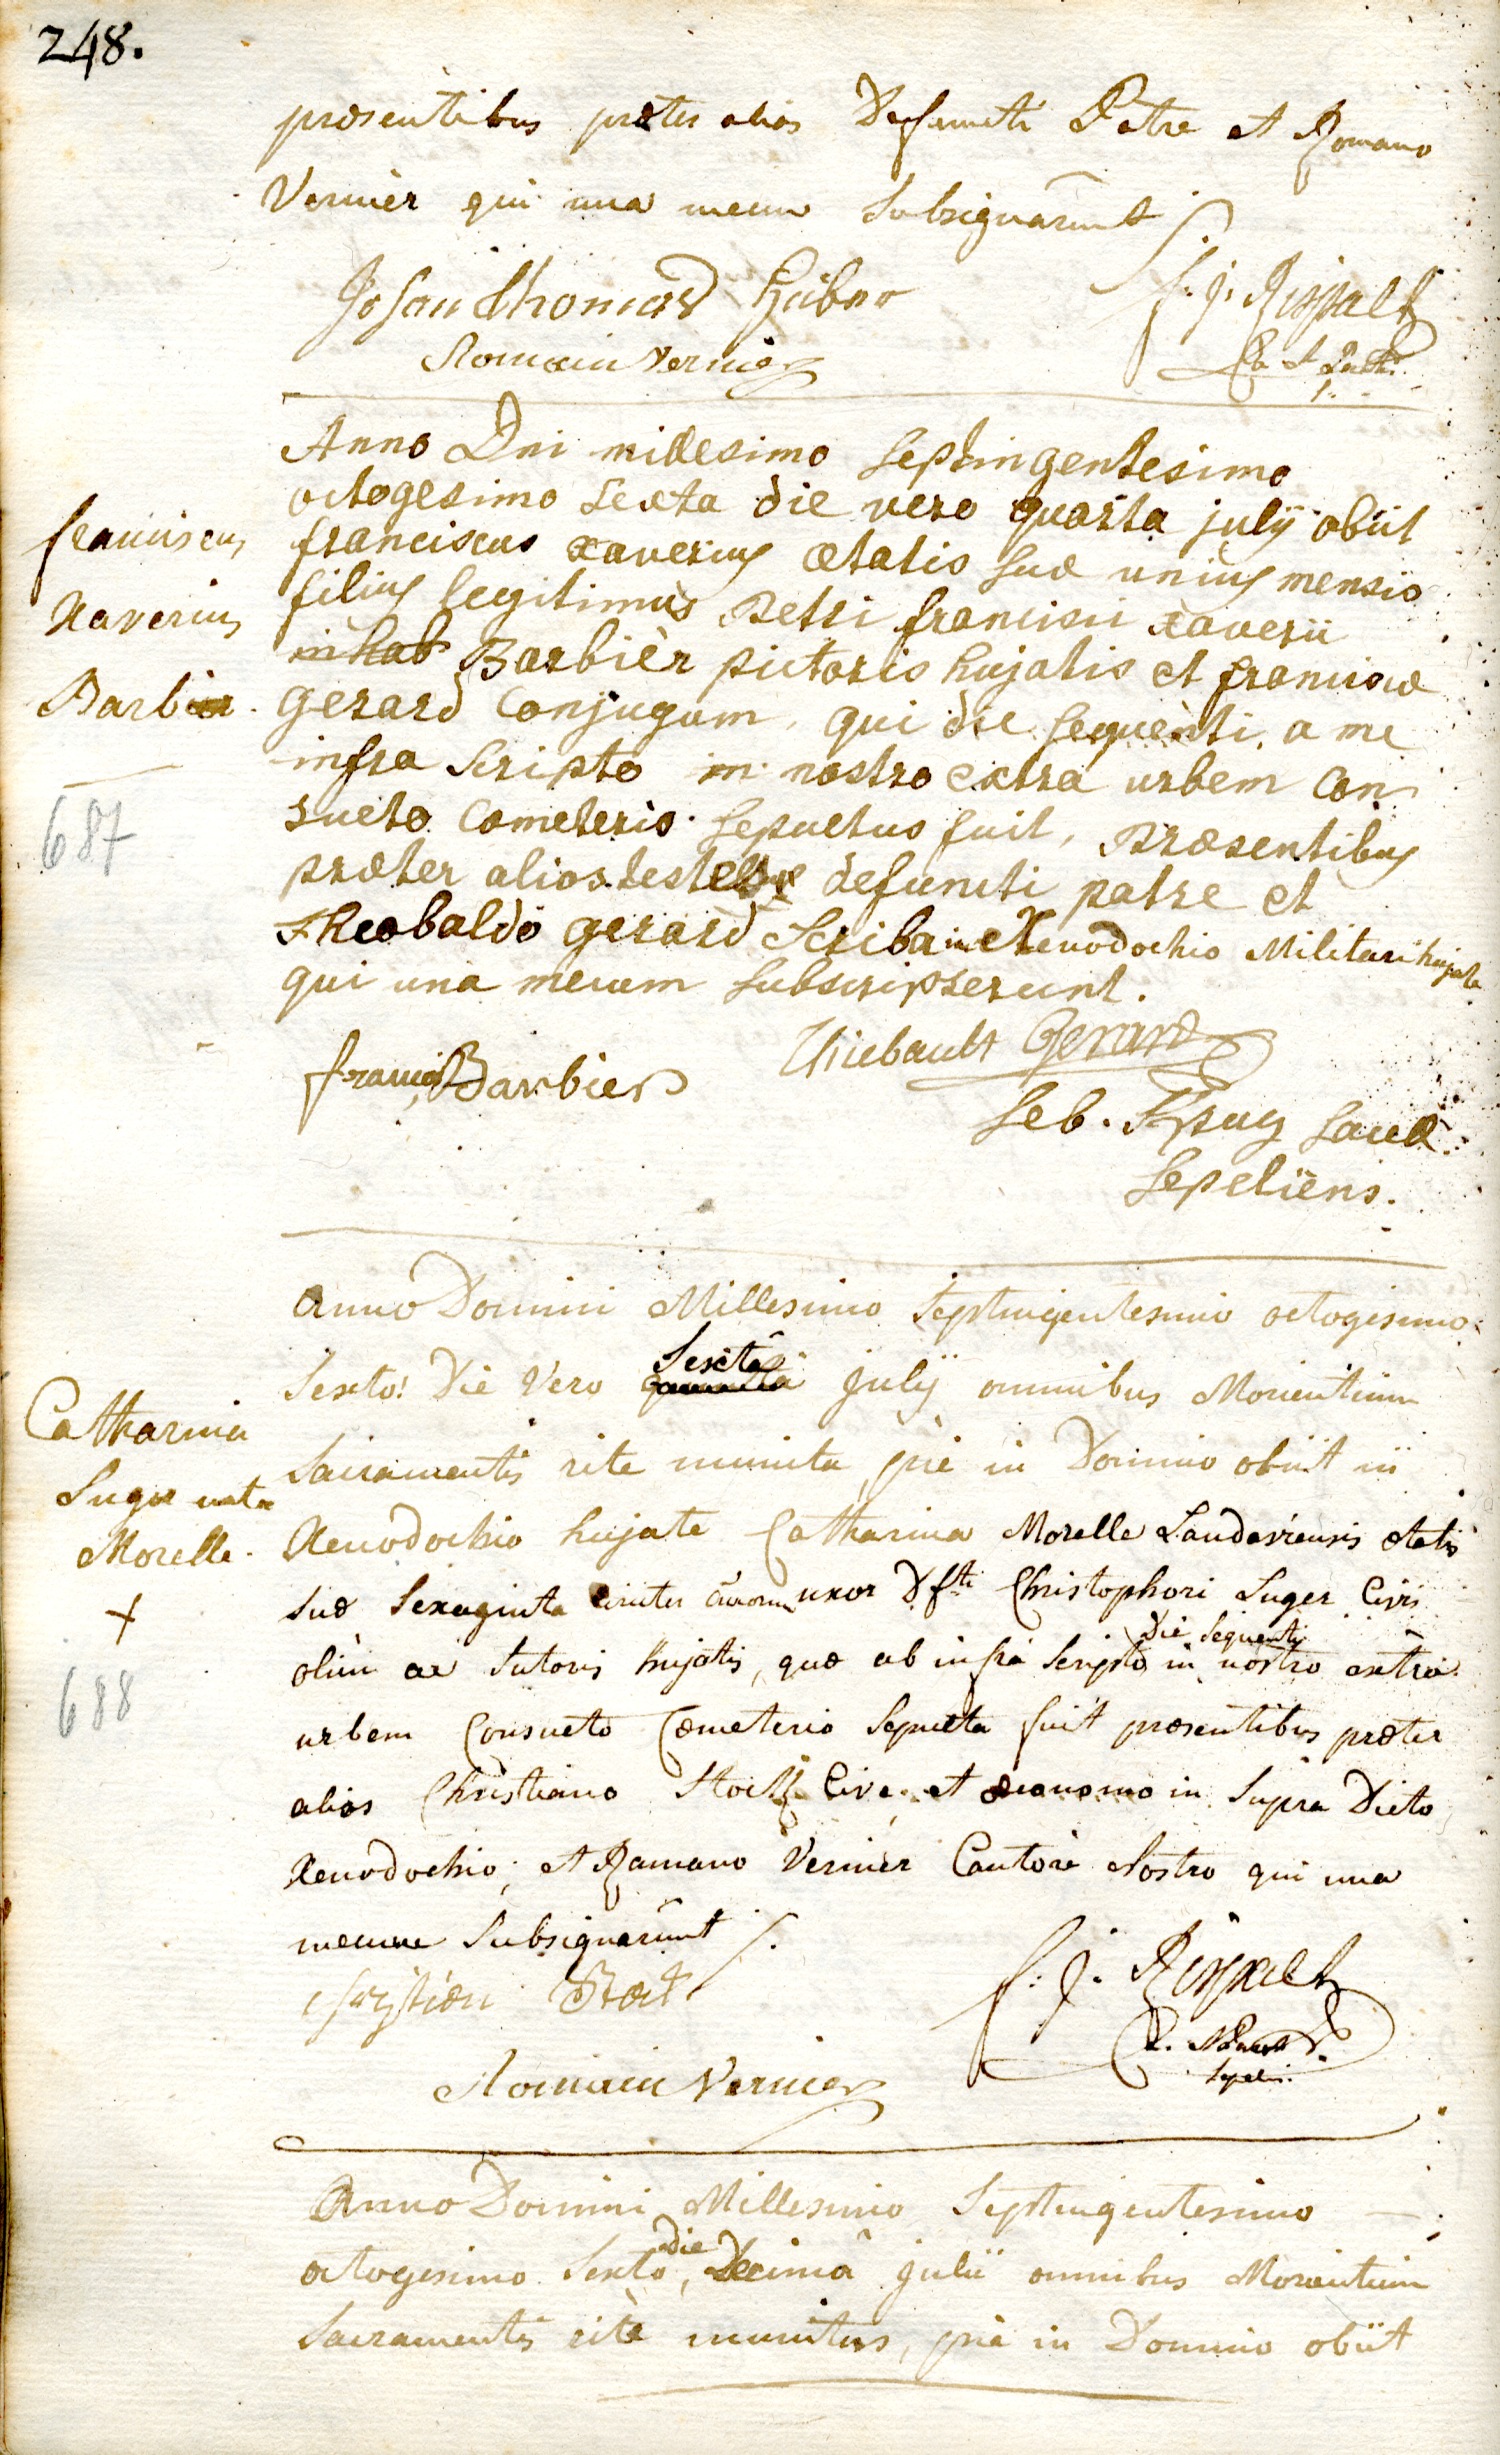 248.
præsentibus præter alios Defuncti Patre et Romano
Vernier qui una mecum Subsignarunt
Johan Thomas Hübner
F. J. Rispalt
Romain Vernier
Anno Dni millesimo septingentesimo
octogesimo sexta die vero quarta julÿ obiit
franciscus xaverius ætatis suæ unius mensis
filius legitimus Petri francisci xaverii
inhab Barbièr pictoris hujatis et franciscæ
gerard Conjugum, qui die sequenti, a me
infra scripto in nostro extra urbem Con
sueto Cometerio sepultus fuit, præsentibus
præter alios testes defuncti patre et
Theobaldo gerard Scriba in Xenodochio Militari hujate
qui una mecum subscripserunt.
franciscus
Xaverius
Barbier
687
Thiebault Gerard
francis Barbier
Seb.
Sepeliens.
Anno Domini Millesimo Septingentesimo octogesimo
Sexto! Die Vero Sexta julÿ omnibus Morientium
Sacramentis rite munita piè in Domino obiit in
Xenodochio hujate Catharina Morelle Landaviensis ætatis
suæ Sexaginta circiter annorum uxor Dfti Christophori Luger Civis
olim ac Sutoris hujatis, quæ ab infrà Scripto Die Sequenti in nostro extrà
urbem Consueto Cæmeterio Sepulta fuit præsentibus præter
alios Christiano Stoekl Cive et œconomo in Supra Dicto
Xenodochio, et Romano Vernièr Cantore Nostro qui una
mecum Subsignarunt
Catharina
Luger nata
Morelle.
+
688
F: J. Rispalt
Romain Vernier
Sepeli.
Anno Domini Millesimo Septingentesimo
octogesimo Sexto, die Decimâ julii omnibus Morientium
Sacramentis ritè munitus, piè in Domino obiit